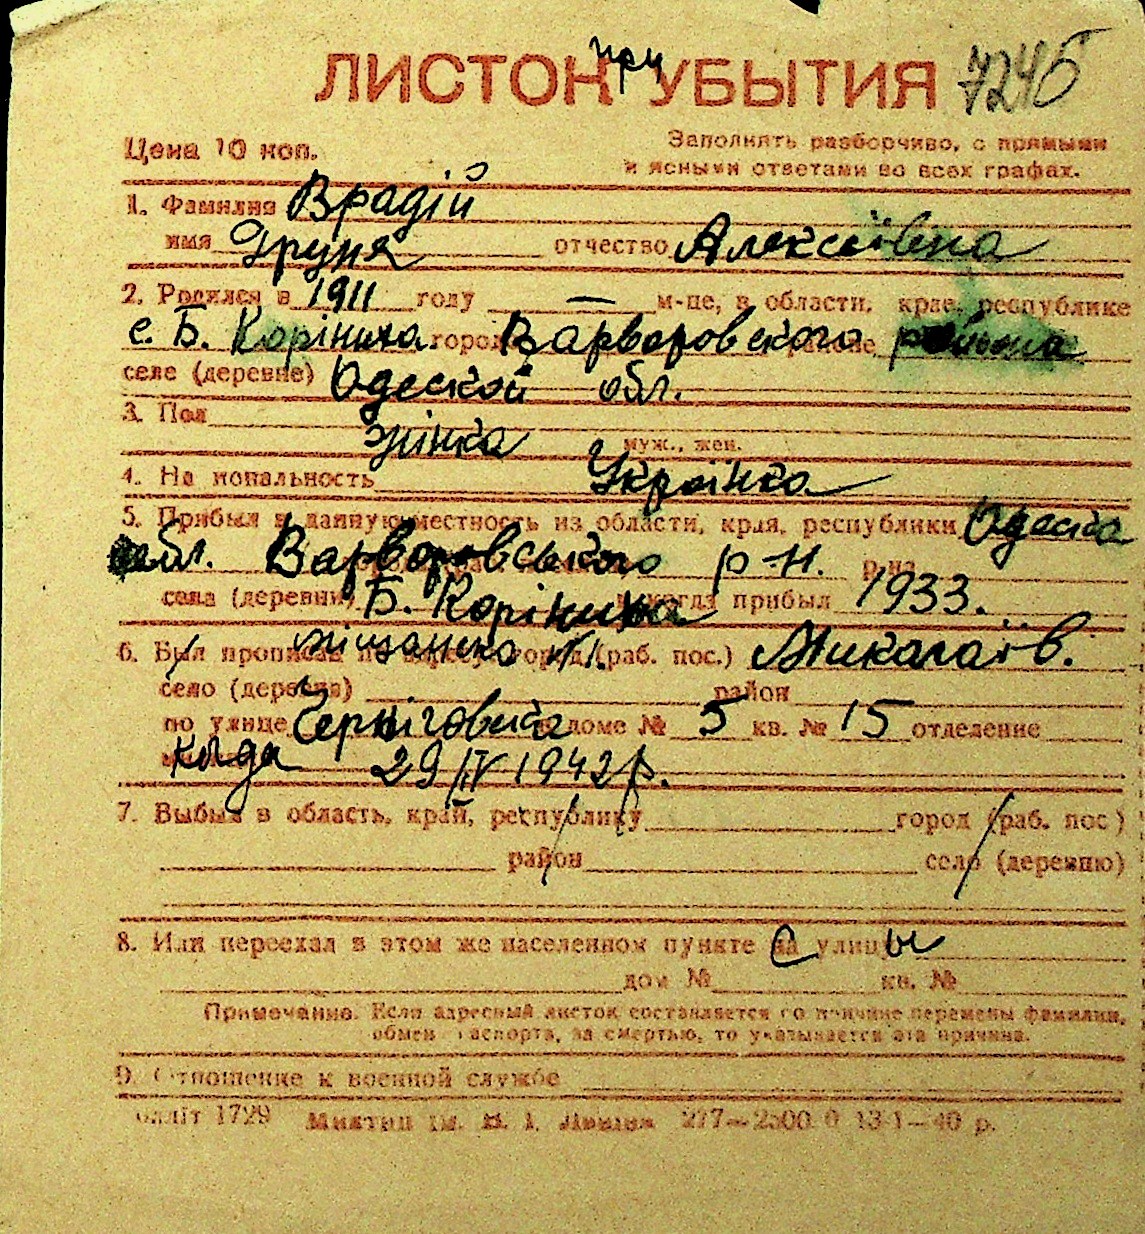 ЛИСТОК при УБЫТИЯ 7246
Цена 10 коп.
Заполнять разборчиво, с прямыми
и ясными ответами во всех графах.
1. Фамилия Врадій
имя Груня отчество Алексеівна
2. Родился в 1911 году — м-це, в области, крае, республике
с. Б. Корініха город Варворовского районе района
селе (деревне) Одеской обл.
3. Пол жінка муж., жен.
4. Национальность Українка
5. Прибыл в данную местность из области, края, республики Одеска
обл. Варворовського р-н. р-на
села (деревни) Б. Корініха когда прибыл 1933.
6. Был прописан по адресу: город (раб. пос.) Микалаїв.
село (деревня) район
по улице Черніговська дом № 5 кв. № 15 отделение
когда 29/IV 1942 р.
7. Выбыл в область, край, республику город (раб. пос)
район село (деревню)
8. Или переехал в этом же населенном пункте с улицы
дом № кв. №
Примечание. Если адресный листок составляется по причине перемены фамилии,
обмен паспорта, за смертью, то указывается эта причина.
9. Отношение к военной службе
облліт 1729 Миктип ім. В. І. Леніна 277—2500 0 13-1—40 р.